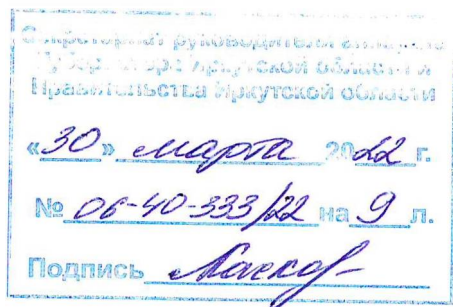 Секретариат руководителя аппарата
Губернатора Иркутской области и
Правительства Иркутской области
«30» марта 2022 г.
№ 06-40-333/22 на 9 л.
Подпись